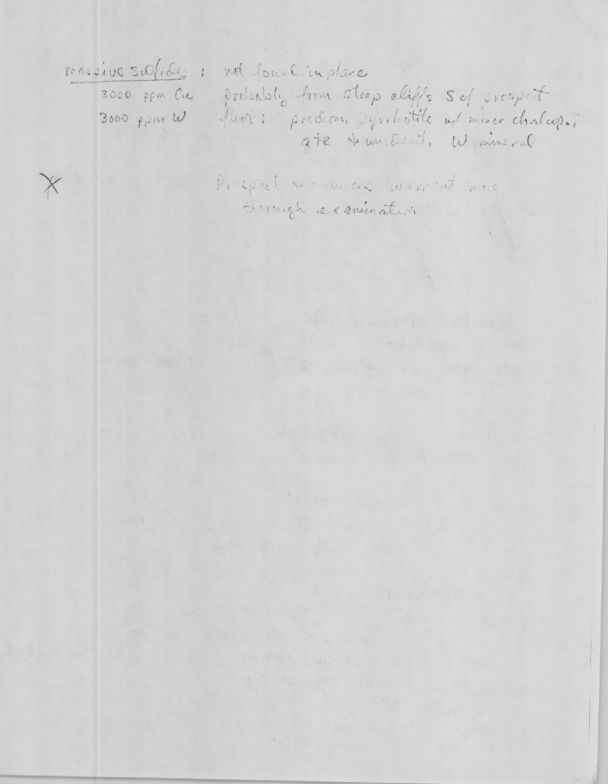 massive sulfides : not found in place
3000 ppm Cu probably from steep cliffs S of prospect
3000 ppm W float : predom. pyrrhotite w/ minor chalcop.;
qtz & unident. W mineral
X Prospect & environs warrant more
thorough examination